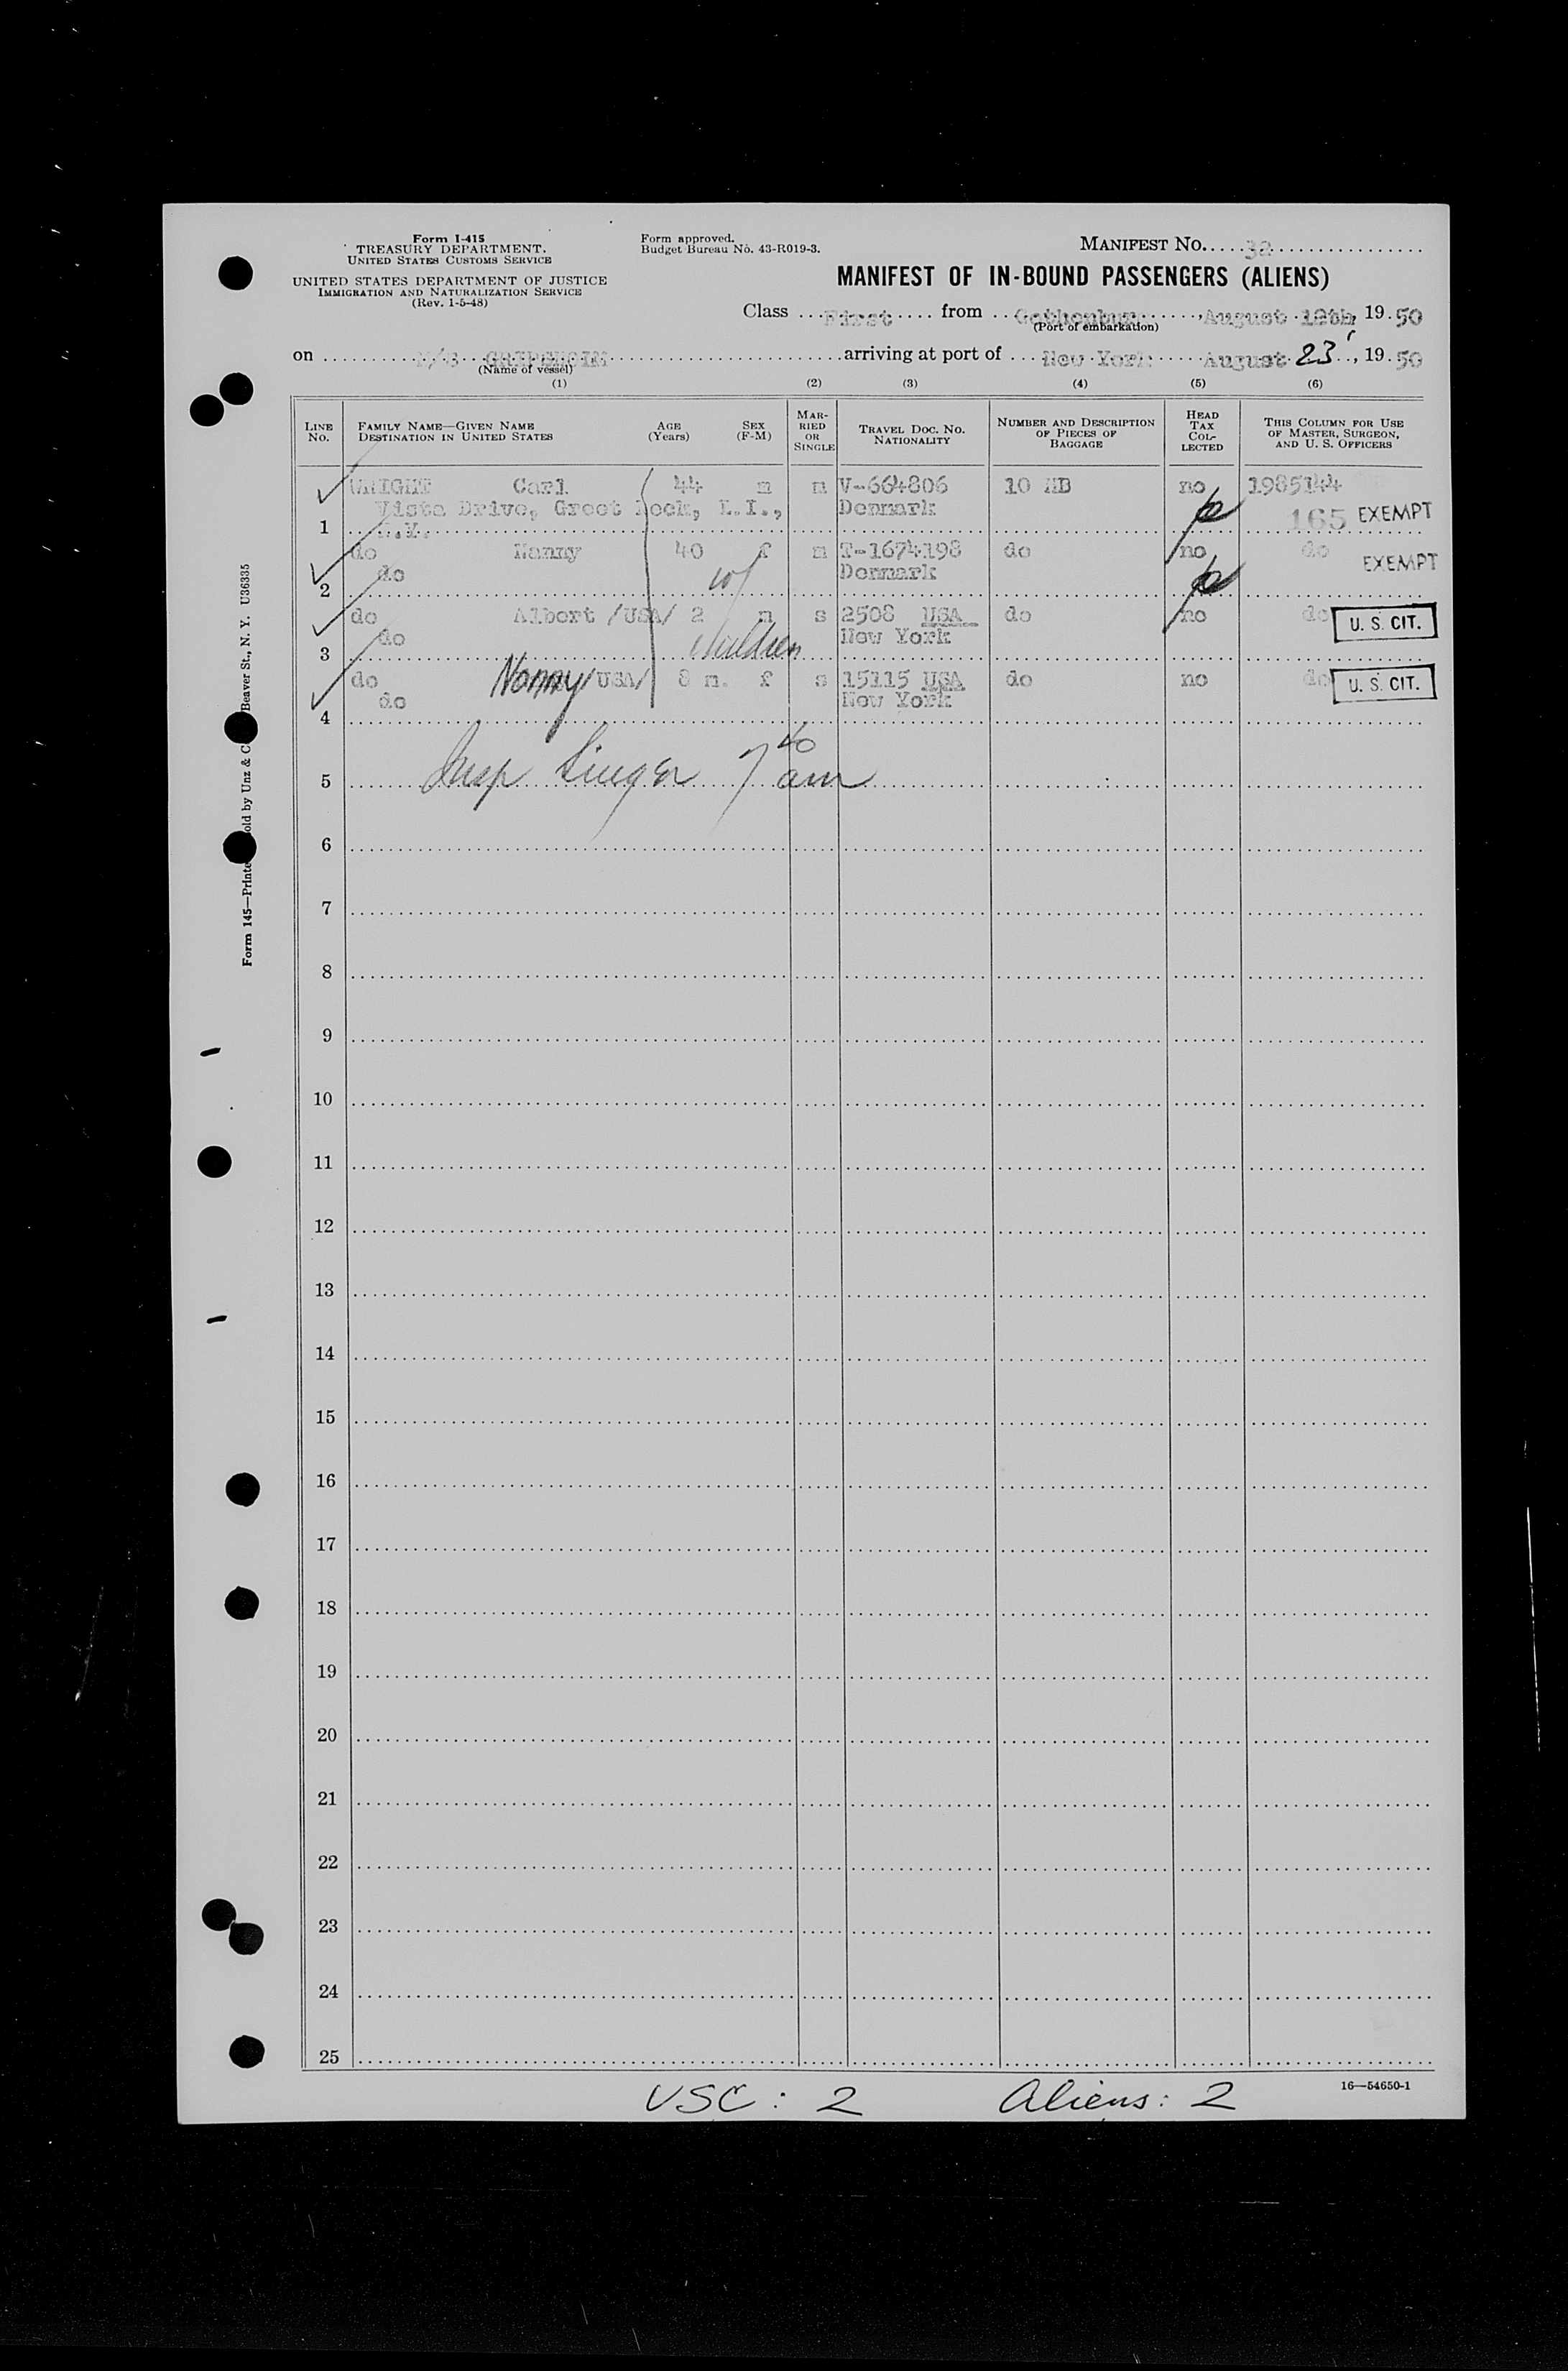 Form I-415
TREASURY DEPARTMENT.
UNITED STATES CUSTOMS SERVICE
UNITED STATES DEPARTMENT OF JUSTICE
IMMIGRATION AND NATURALIZATION SERVICE
(Rev. 1-5-48)
Form approved.
Budget Bureau No. 43-R019-3.
MANIFEST No. 32
MANIFEST OF IN-BOUND PASSENGERS (ALIENS)
Class First from Gothenburg, August 12th, 19 50
(Port of embarkation)
on M/S GRIPSHOLM arriving at port of New York August 23, 19 50
(Name of vessel)
(1) (2) (3) (4) (5) (6)
LINE No. FAMILY NAME—GIVEN NAME DESTINATION IN UNITED STATES AGE (Years) SEX (F-M) MARRIED OR SINGLE TRAVEL DOC. NO. NATIONALITY NUMBER AND DESCRIPTION OF PIECES OF BAGGAGE HEAD TAX COLLECTED THIS COLUMN FOR USE OF MASTER, SURGEON, AND U. S. OFFICERS
WRIGHT Carl 44 m m V-664806 10 HB no 1985144
Vista Drive, Great Neck, L.I., Denmark 165 EXEMPT
1 N.Y.
do Nanny 40 f m T-1674198 do no do EXEMPT
do wf Denmark
2
do Albert /USA/ 2 m s 2508 USA do no do U. S. CIT.
do children New York
3
do Nanny /USA/ 8 m. f s 15115 USA do no do U. S. CIT.
do New York
4
5 Insp Singer 7 40 am
6
7
8
9
10
11
12
13
14
15
16
17
18
19
20
21
22
23
24
25
USC: 2 Aliens: 2
16—54650-1
Form 145—Printe old by Unz & C Beaver St., N. Y. U36335